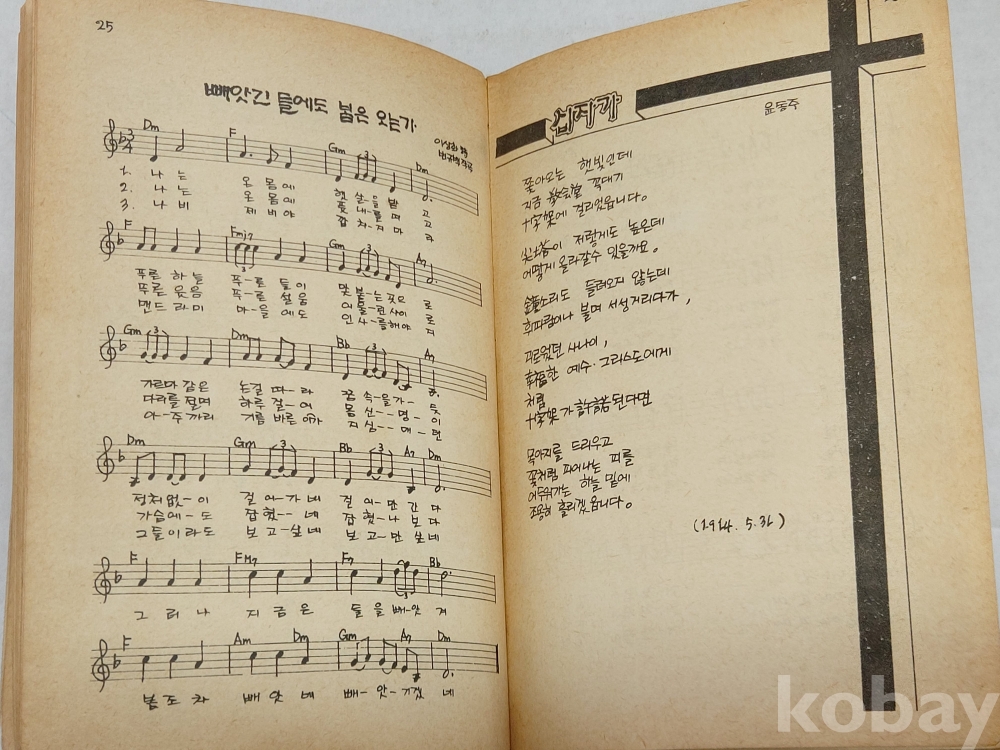 25
빼앗긴 들에도 봄은 오는가
이상화 詩
변규백 작곡
Dm F Gm Dm
1. 나 는 온 몸 에 햇 살-을 받 고
2. 나 는 온 몸 에 풋 내-를 띠 고
3. 나 비 제 비 야 깝 치-지 마 라
F Fmj7 Gm A7
푸른 하늘 푸-른 들이 맞 붙-는곳으 로
푸른 웃음 푸-른 설움 어울-린사이 로
맨드 라미 마-을 에도 인 사-를해야 지
Gm Dm Bb A7
가르마 같은 논길 따-라 꿈 속-을가- 듯
다리를 절며 하루 걸-어 봄 신--령- 이
아-주까리 기름 바른 이가 지심--매- 던
Dm Gm Bb A7 Dm
정처없-이 걸 어-가네 걸 어-만 간 다
가슴에-도 잡혔--네 잡 혔-나 보 다
그들이라도 보 고-싶네 보 고-만 싶네
F FM7 F7 Bb
그 러 나 지 금 은 들 을 빼-앗 겨
F Am Dm Gm A7 Dm
봄 조 차 빼 앗 네 빼-앗-기겠 네
십자가
윤동주
쫓아오든 햇빛인데
지금 敎会堂 꼭대기
十字架에 걸리었습니다。
尖塔이 저렇게도 높은데
어떻게 올라갈수 있을까요。
鐘소리도 들려오지 않는데
휘파람이나 불며 서성거리다가,
괴로웠던 사나이,
幸福한 예수·그리스도에게
처럼
十字架가 許諾된다면
목아지를 드리우고
꽃처럼 피어나는 피를
어두워가는 하늘 밑에
조용히 흘리겠읍니다。
(1914. 5. 31)
kobay